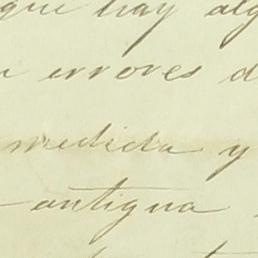 que hay alg
errores d
medida y
antigua